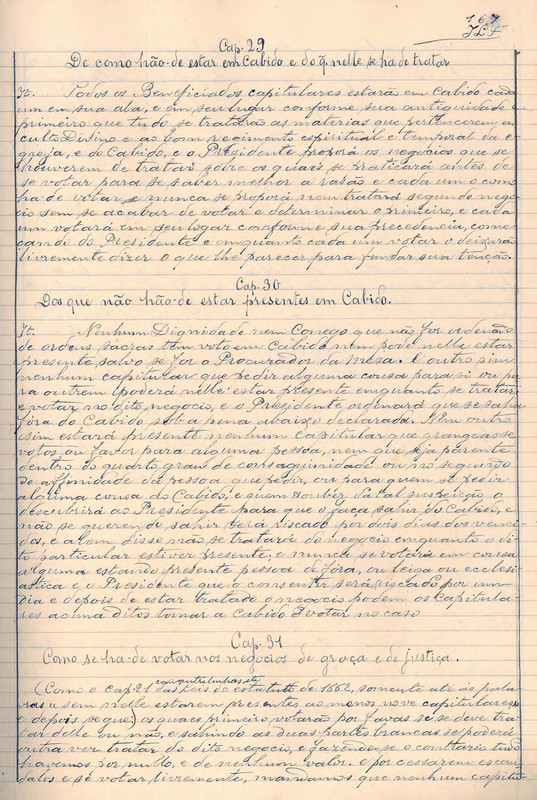 167
Cap. 29
De como hão-de estar em Cabido e do q̃ nelle se ha de tratar
It. Todos os Beneficiados capitulares estarão em Cabido cada
um em sua aba, e em seu lugar conforme sua antiguidade e
primeiro que tudo se tratarão as materias que pertencerem ao
culto Divino e ao bom regimento espiritual e temporal da e-
greja, e do Cabido, e o Presidente proporá os negocios que se
houverem de tratar sobre os quaes se praticará antes de
se votar para se saber melhor a rasão e cada um o como
ha de votar e nunca se proporá nem tratará segundo nego-
cio sem se acabar de votar e determinar o primeiro, e cada
um votará em seu logar conforme sua precedencia, come-
çando do Presidente e emquanto cada um votar o deixarão
livremente dizer o que lhe parecer para fundar sua tenção.
Cap. 30
Dos que não hão-de estar presentes em Cabido.
It. Nenhum Dignidade nem Conego que não for ordenado
de ordens sacras tem voto em Cabido nem pode nelle estar
presente salvo se for o Procurador da Mesa. E outro sim
nenhum capitular que pedir alguma cousa para si ou pa-
ra outrem poderá nelle estar presente emquanto se tratar
e votar no dito negocio, e o Presidente ordenará que se saia
fóra do Cabido sob a pena abaixo declarada. Nem outro
sim estará presente nenhum capitular que grangeasse
votos ou favor para alguma pessoa, nem que seja parente
dentro do quarto grau de consaguinidade ou no segundo
de affinidade da pessoa que pedir, ou para quem se pedir
alguma cousa do Cabido, e quem souber da tal suspeição o
descubrirá ao Presidente para que o faça sahir do Cabido, e
não se querendo sahir será riscado por dois dias dos venci-
dos, e alem disso não se tratará do negocio emquanto o di-
to particular estiver presente, e nunca se votará em cousa
alguma estando presente pessoa de fóra, ou leiga ou ecclesi-
astica e o Presidente que o consentir será riscado por um
dia e depois de estar tratado o negocio podem os Capitula-
res acima ditos tornar a Cabido e votar no caso
Cap. 31
Como se ha-de votar nos negocios de graça e de justiça.
(Como o cap. 21 das Leis do estatuto de 1662, somente até ás pala-
com entrelinhas, etc
vras e sem nelle estarem presentes ao menos nove capitulares,
e depois segue:) os quaes primeiro votarão por favas se se deve tra-
tar delle ou não, e sahindo as duas partes brancas se poderá
outra vez tratar do dito negocio, e fazendo-se o contrario tudo
havemos por nullo, e de nenhum valor. e por cessarem escan-
dalos e se votar livremente, mandamos que nenhum capitu-